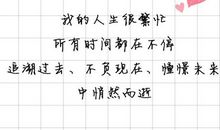 我的人生很繁忙
所有时间都在不停
追溯过去、不负现在、憧憬未来
中悄然而逝